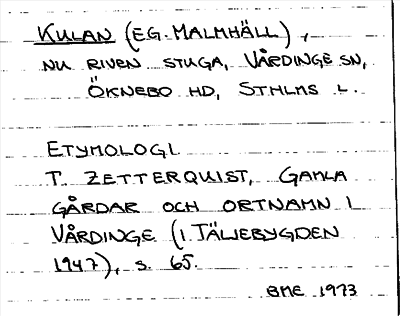 KULAN (EG. MALMHÄLL),
NU RIVEN STUGA, VÅRDINGE SN,
ÖKNEBO HD, STHLMS L.
ETYMOLOGI
T. ZETTERQUIST, GAMLA
GÅRDAR OCH ORTNAMN I
VÅRDINGE (I TÄLJEBYGDEN
1947), S. 65.
BME 1973